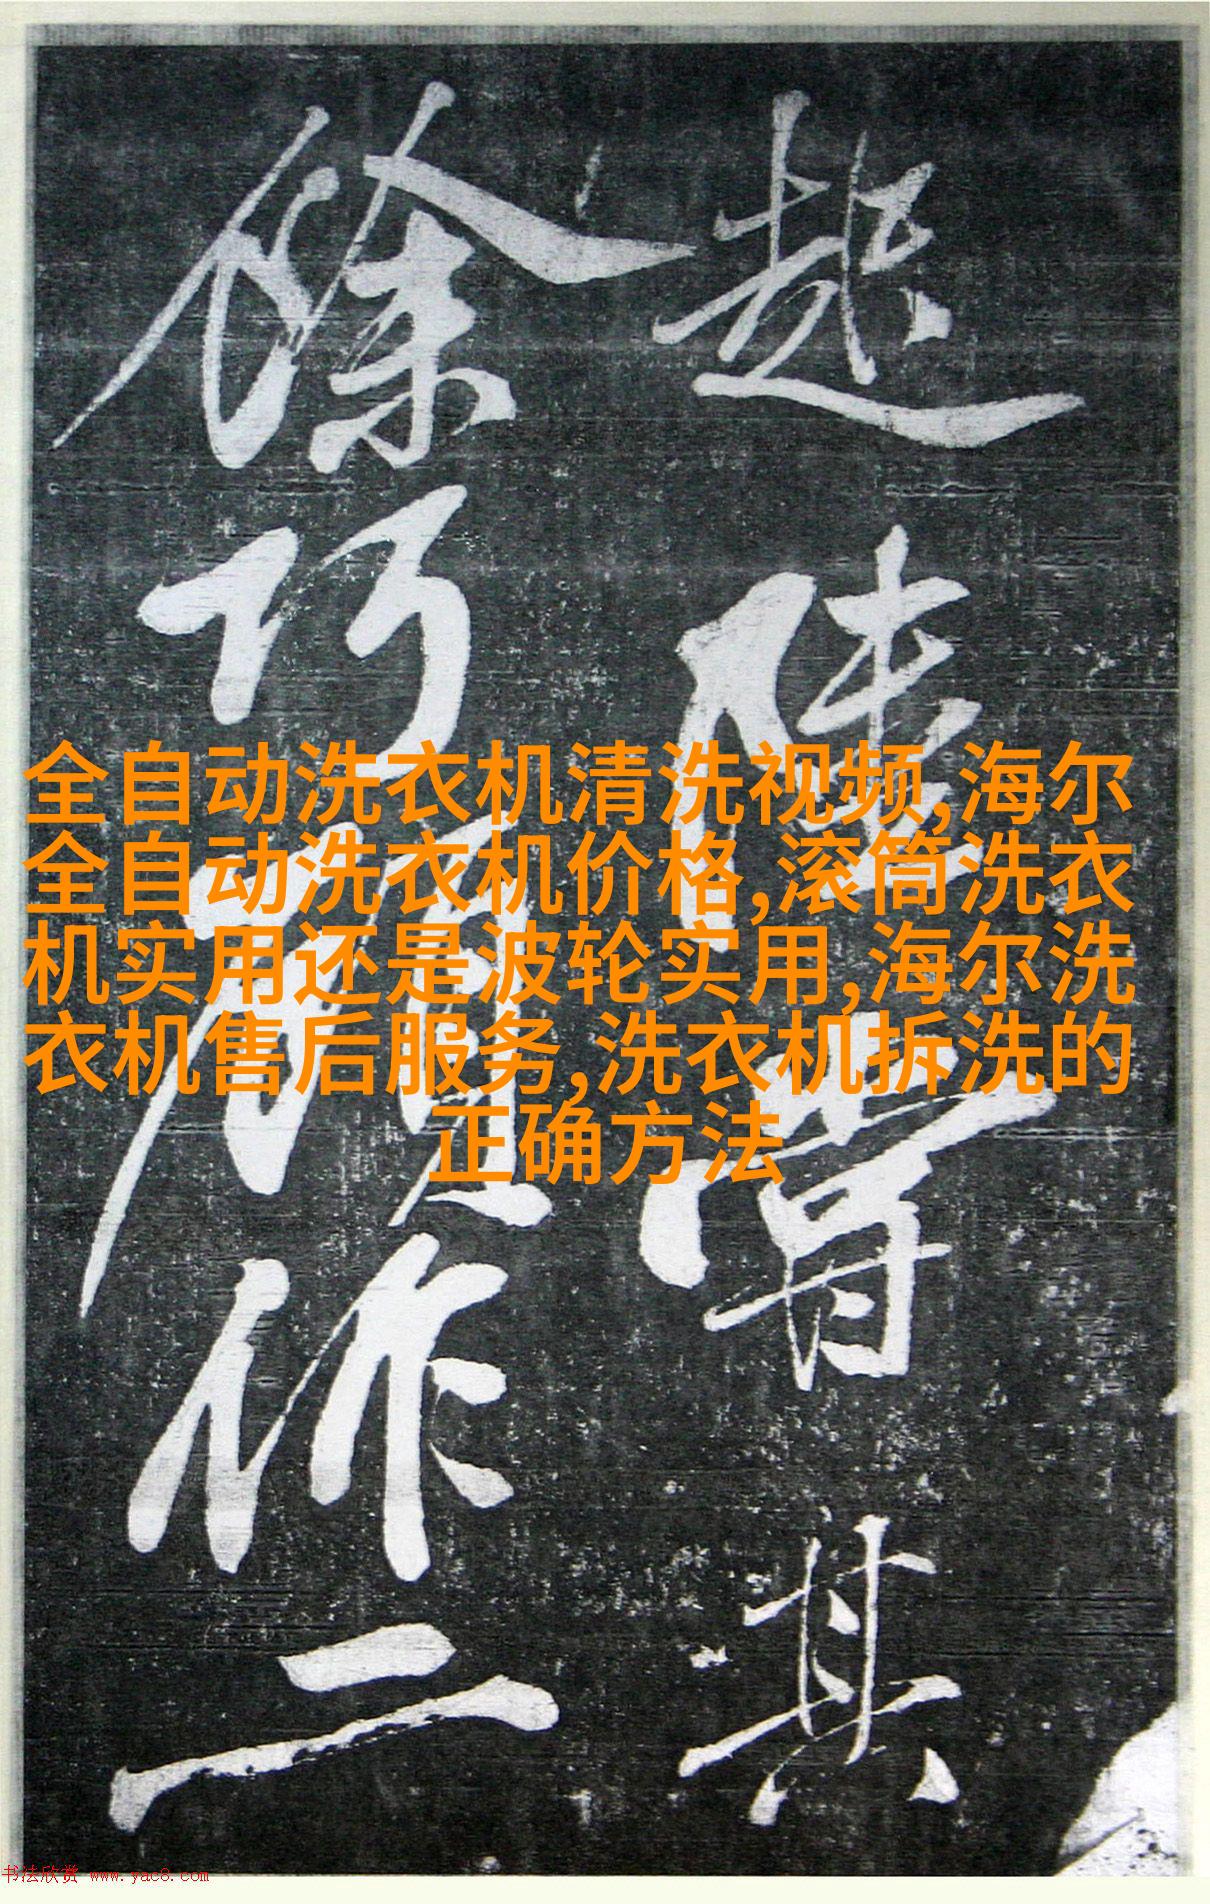 越陵脊其
徐巧顧作二
全自动洗衣机清洗视频,海尔
全自动洗衣机价格,滚筒洗衣
机实用还是波轮实用,海尔洗
衣机售后服务,洗衣机拆洗的
正确方法
书法欣赏 www.yac8.com